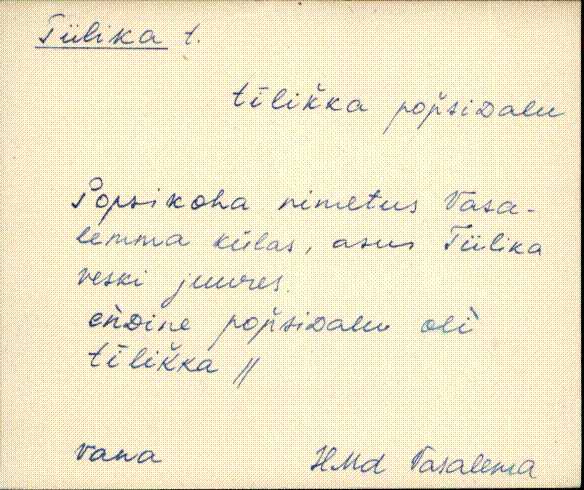 Tiilika t.
tīlikka pop̆sidalu
Popsikoha nimetus Vasa-
lemma külas, asus Tiilika
veski juures.
eǹdine pop̆sidalu olì
tīlikka //
vana
HMd Vasalema